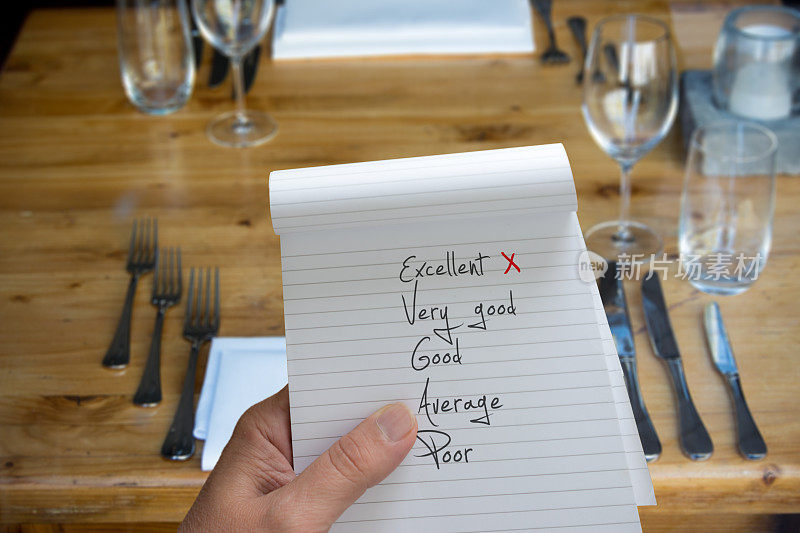 Excellent X
Very good
Good
Average
Poor
new 新图网